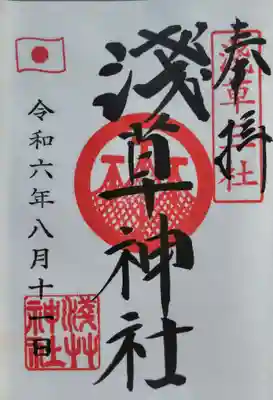 奉拝
淺草神社
淺草神社
令和六年八月十一日
淺草神社